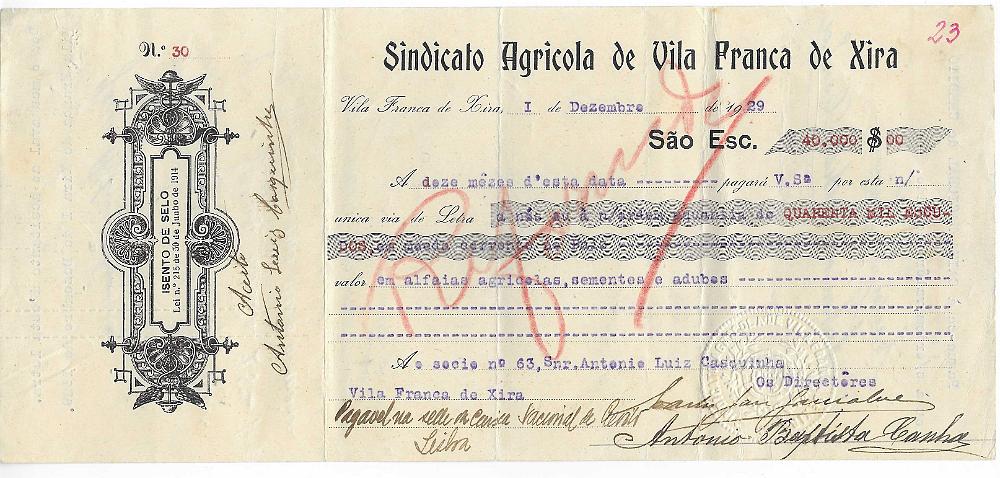 23
N.º 30
Sindicato Agricola de Vila Franca de Xira
Vila Franca de Xira, I de Dezembro de 1929
São Esc. 40.000 $ 00
A deze mêzes d'esta data --------- pagará V.Sª por esta n/
unica via de Letra a nós ou á n/ordem, aquantia de QUARENTA MIL ESCU-
DOS em moeda corrente
valor em alfaias agricolas, sementes e adubes
Ao socio nº 63, Snr. Antonio Luiz Casquinha
Vila Franca de Xira
Os Directôres
Pagavel na séde da Caixa Nacional de
Lisboa
António Baptista Canha
Reformada
ISENTO DE SELO
Lei n.º 215 de 30 de Junho de 1914
Aceito
Antonio Luiz Casquinha